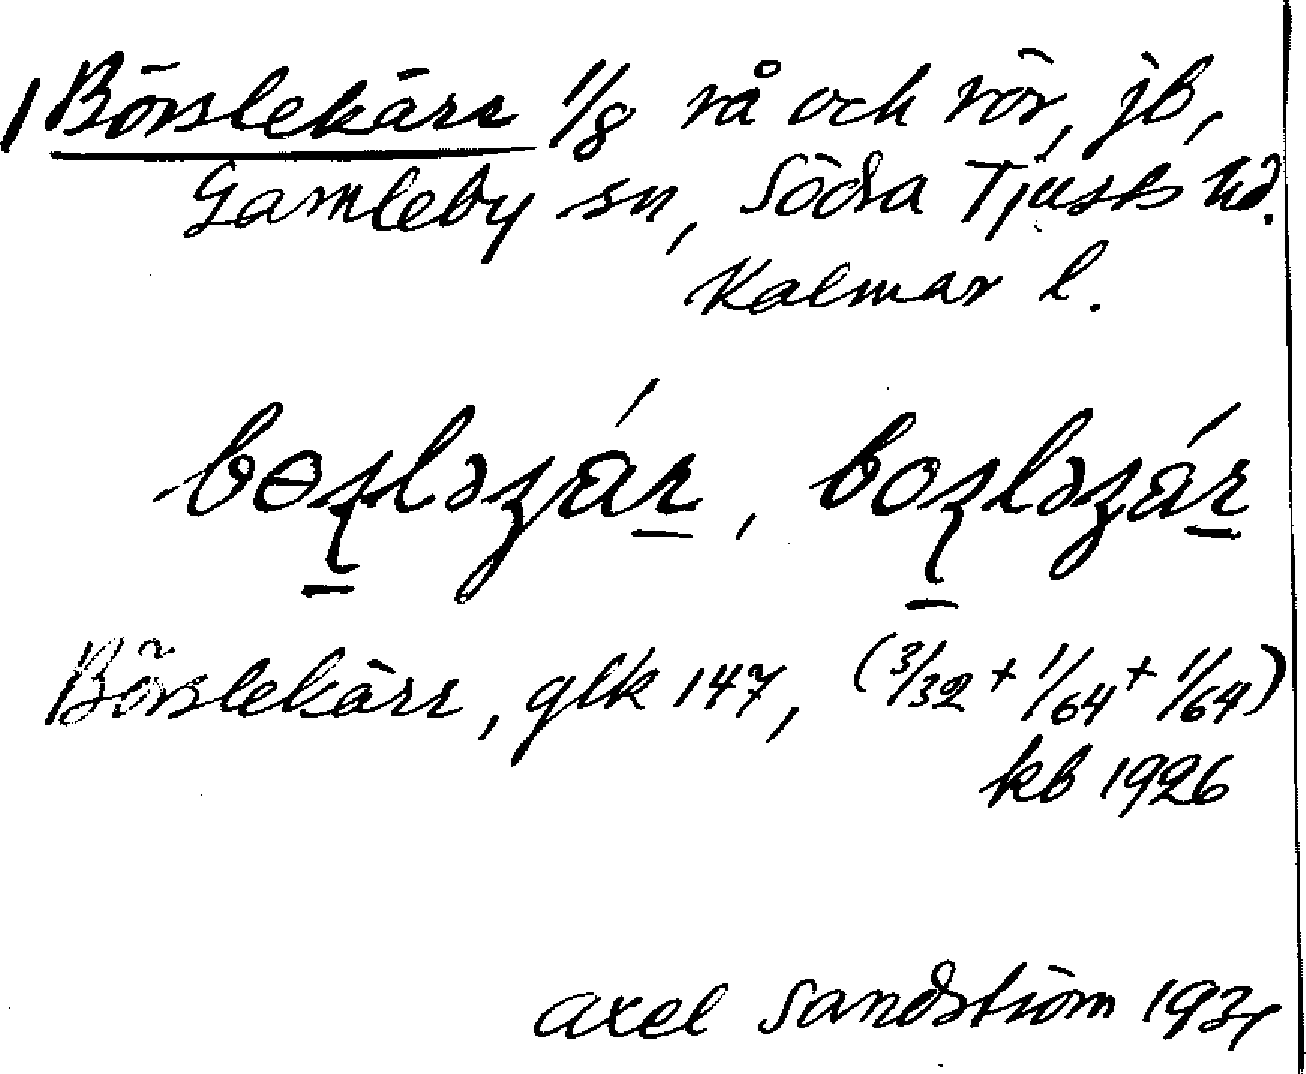 Börslekärr 1/8 rå och rör, jb,
Gamleby sn, Södra Tjusts hd.
Kalmar l.
Börslekärr, glk 147, (3/32 + 1/64 + 1/64)
kb 1926
Axel Sandström